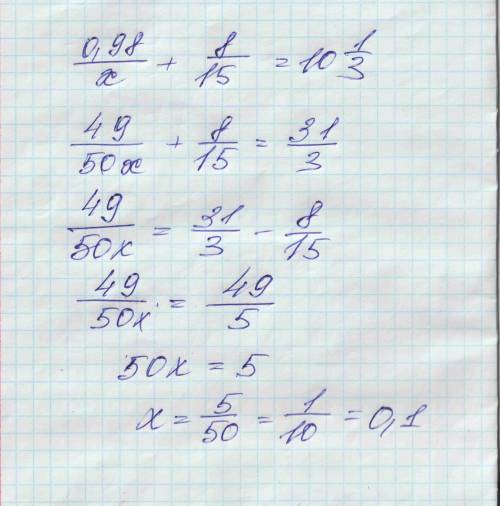 0,98/x + 8/15 = 10 1/3
49/50x + 8/15 = 31/3
49/50x = 31/3 - 8/15
49/50x = 49/5
50x = 5
x = 5/50 = 1/10 = 0,1